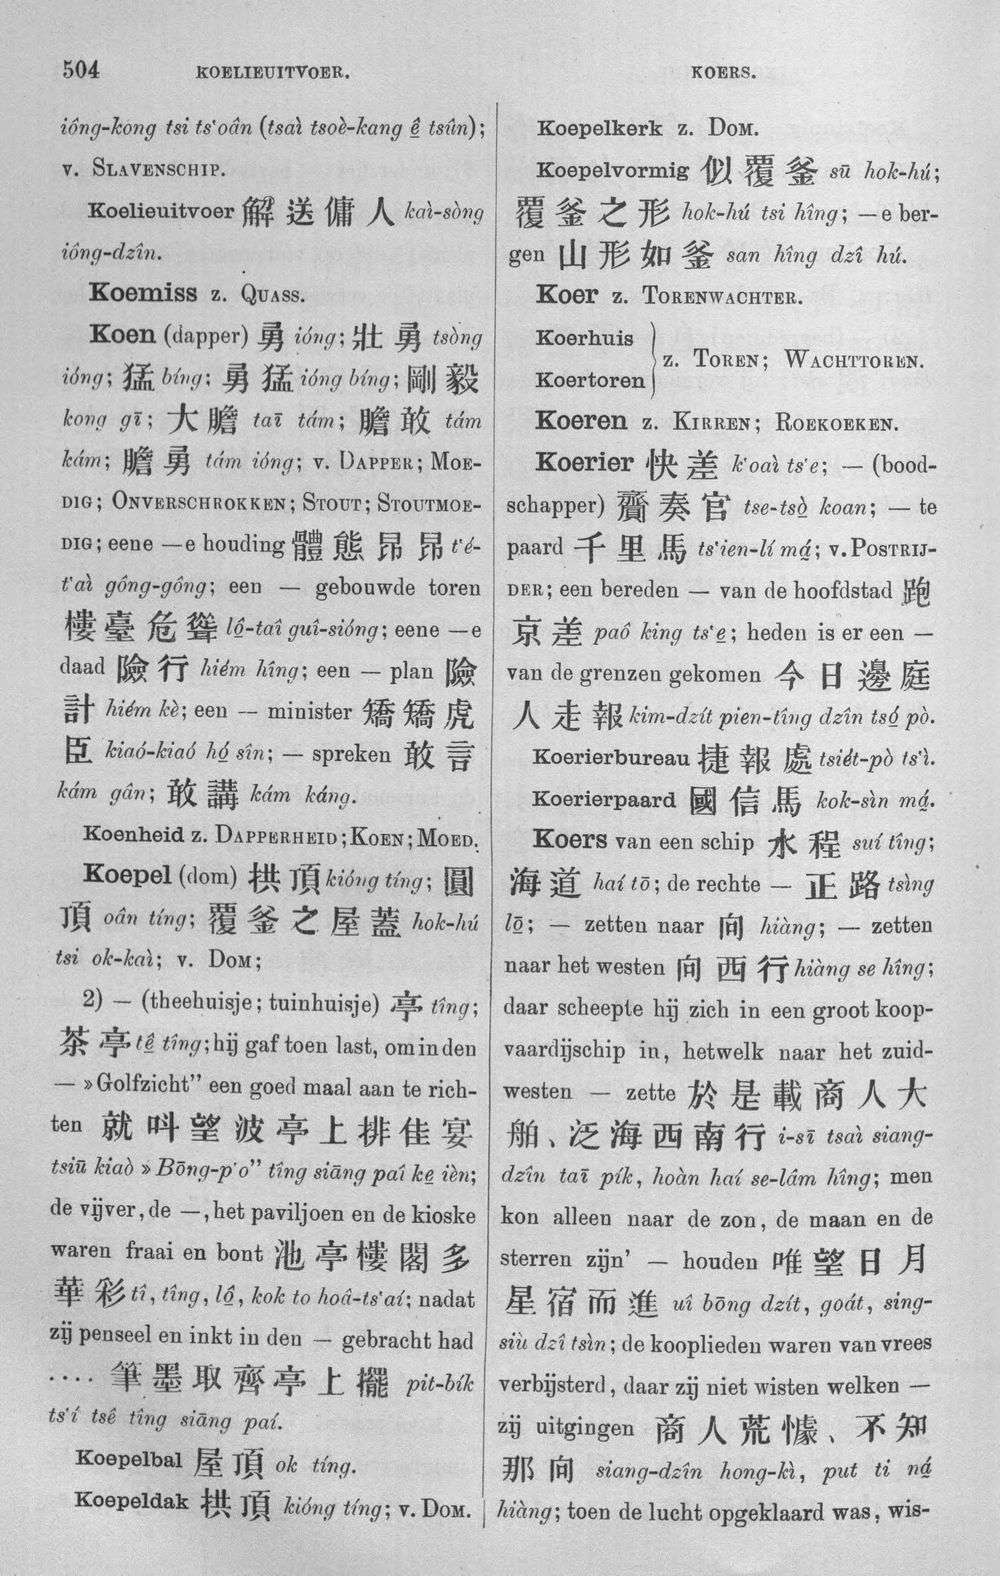 504 KOELIEUITVOER. KOERS.
iông-kong tsi ts'oân (tsaì tsoè-kang ê tsûn);
v. SLAVENSCHIP.
Koelieuitvoer 解送傭人 kaì-sòng
iông-dzîn.
Koemiss z. QUASS.
Koen (dapper) 勇 ióng; 壯勇 tsòng
ióng; 猛 bíng; 勇猛 ióng bíng; 剛毅
kong gī; 大膽 taī tám; 膽敢 tám
kám; 膽勇 tám ióng; v. DAPPER; MOE-
DIG; ONVERSCHROKKEN; STOUT; STOUTMOE-
DIG; eene —e houding 體態昂昂 t'é-
t'aì gông-gông; een — gebouwde toren
樓臺危聳 lô-taî guî-sióng; eene —e
daad 險行 hiém hîng; een — plan 險
計 hiém kè; een — minister 矯矯虎
臣 kiaó-kiaó hó sîn; — spreken 敢言
kám gân; 敢講 kám káng.
Koenheid z. DAPPERHEID; KOEN; MOED.
Koepel (dom) 拱頂 kióng tíng; 圓
頂 oân tíng; 覆釜之屋蓋 hok-hú
tsi ok-kaì; v. DOM;
2) — (theehuisje; tuinhuisje) 亭 tîng;
茶亭 tê tîng; hij gaf toen last, om in den
— »Golfzicht” een goed maal aan te rich-
ten 就呌望波亭上排佳宴
tsiū kiaò »Bōng-p'o” tîng siāng paî ke ièn;
de vijver, de —, het paviljoen en de kioske
waren fraai en bont 池亭樓閣多
華彩 tî, tîng, lô, kok to hoâ-ts'aí; nadat
zij penseel en inkt in den — gebracht had
.... 筆墨取齊亭上擺 pit-bík
ts'í tsê tîng siāng paí.
Koepelbal 屋頂 ok tíng.
Koepeldak 拱頂 kióng tíng; v. DOM.
Koepelkerk z. DOM.
Koepelvormig 似覆釜 sū hok-hú;
覆釜之形 hok-hú tsi hîng; —e ber-
gen 山形如釜 san hîng dzî hú.
Koer z. TORENWACHTER.
Koerhuis
Koertoren } z. TOREN; WACHTTOREN.
Koeren z. KIRREN; ROEKOEKEN.
Koerier 快差 k'oaì ts'e; — (bood-
schapper) 齎奏官 tse-tsò koan; — te
paard 千里馬 ts'ien-lí má; v. POSTRIJ-
DER; een bereden — van de hoofdstad 跑
京差 paô king ts'e; heden is er een —
van de grenzen gekomen 今日邊庭
人走報 kim-dzít pien-tîng dzîn tsó pò.
Koerierbureau 捷報處 tsiét-pò ts'ì.
Koerierpaard 國信馬 kok-sìn má.
Koers van een schip 水程 suí tîng;
海道 haí tō; de rechte — 正路 tsìng
lō; — zetten naar 向 hiàng; — zetten
naar het westen 向西行 hiàng se hîng;
daar scheepte hij zich in een groot koop-
vaardijschip in, hetwelk naar het zuid-
westen — zette 於是載商人大
舶、泛海西南行 i-sī tsaì siang-
dzîn taī pík, hoàn haí se-lâm hîng; men
kon alleen naar de zon, de maan en de
sterren zijn’ — houden 唯望日月
星宿而進 uî bōng dzít, goát, sing-
siù dzî tsìn; de kooplieden waren van vrees
verbijsterd, daar zij niet wisten welken —
zij uitgingen 商人荒懅、不知
那向 siang-dzîn hong-kì, put ti ná
hiàng; toen de lucht opgeklaard was, wis-